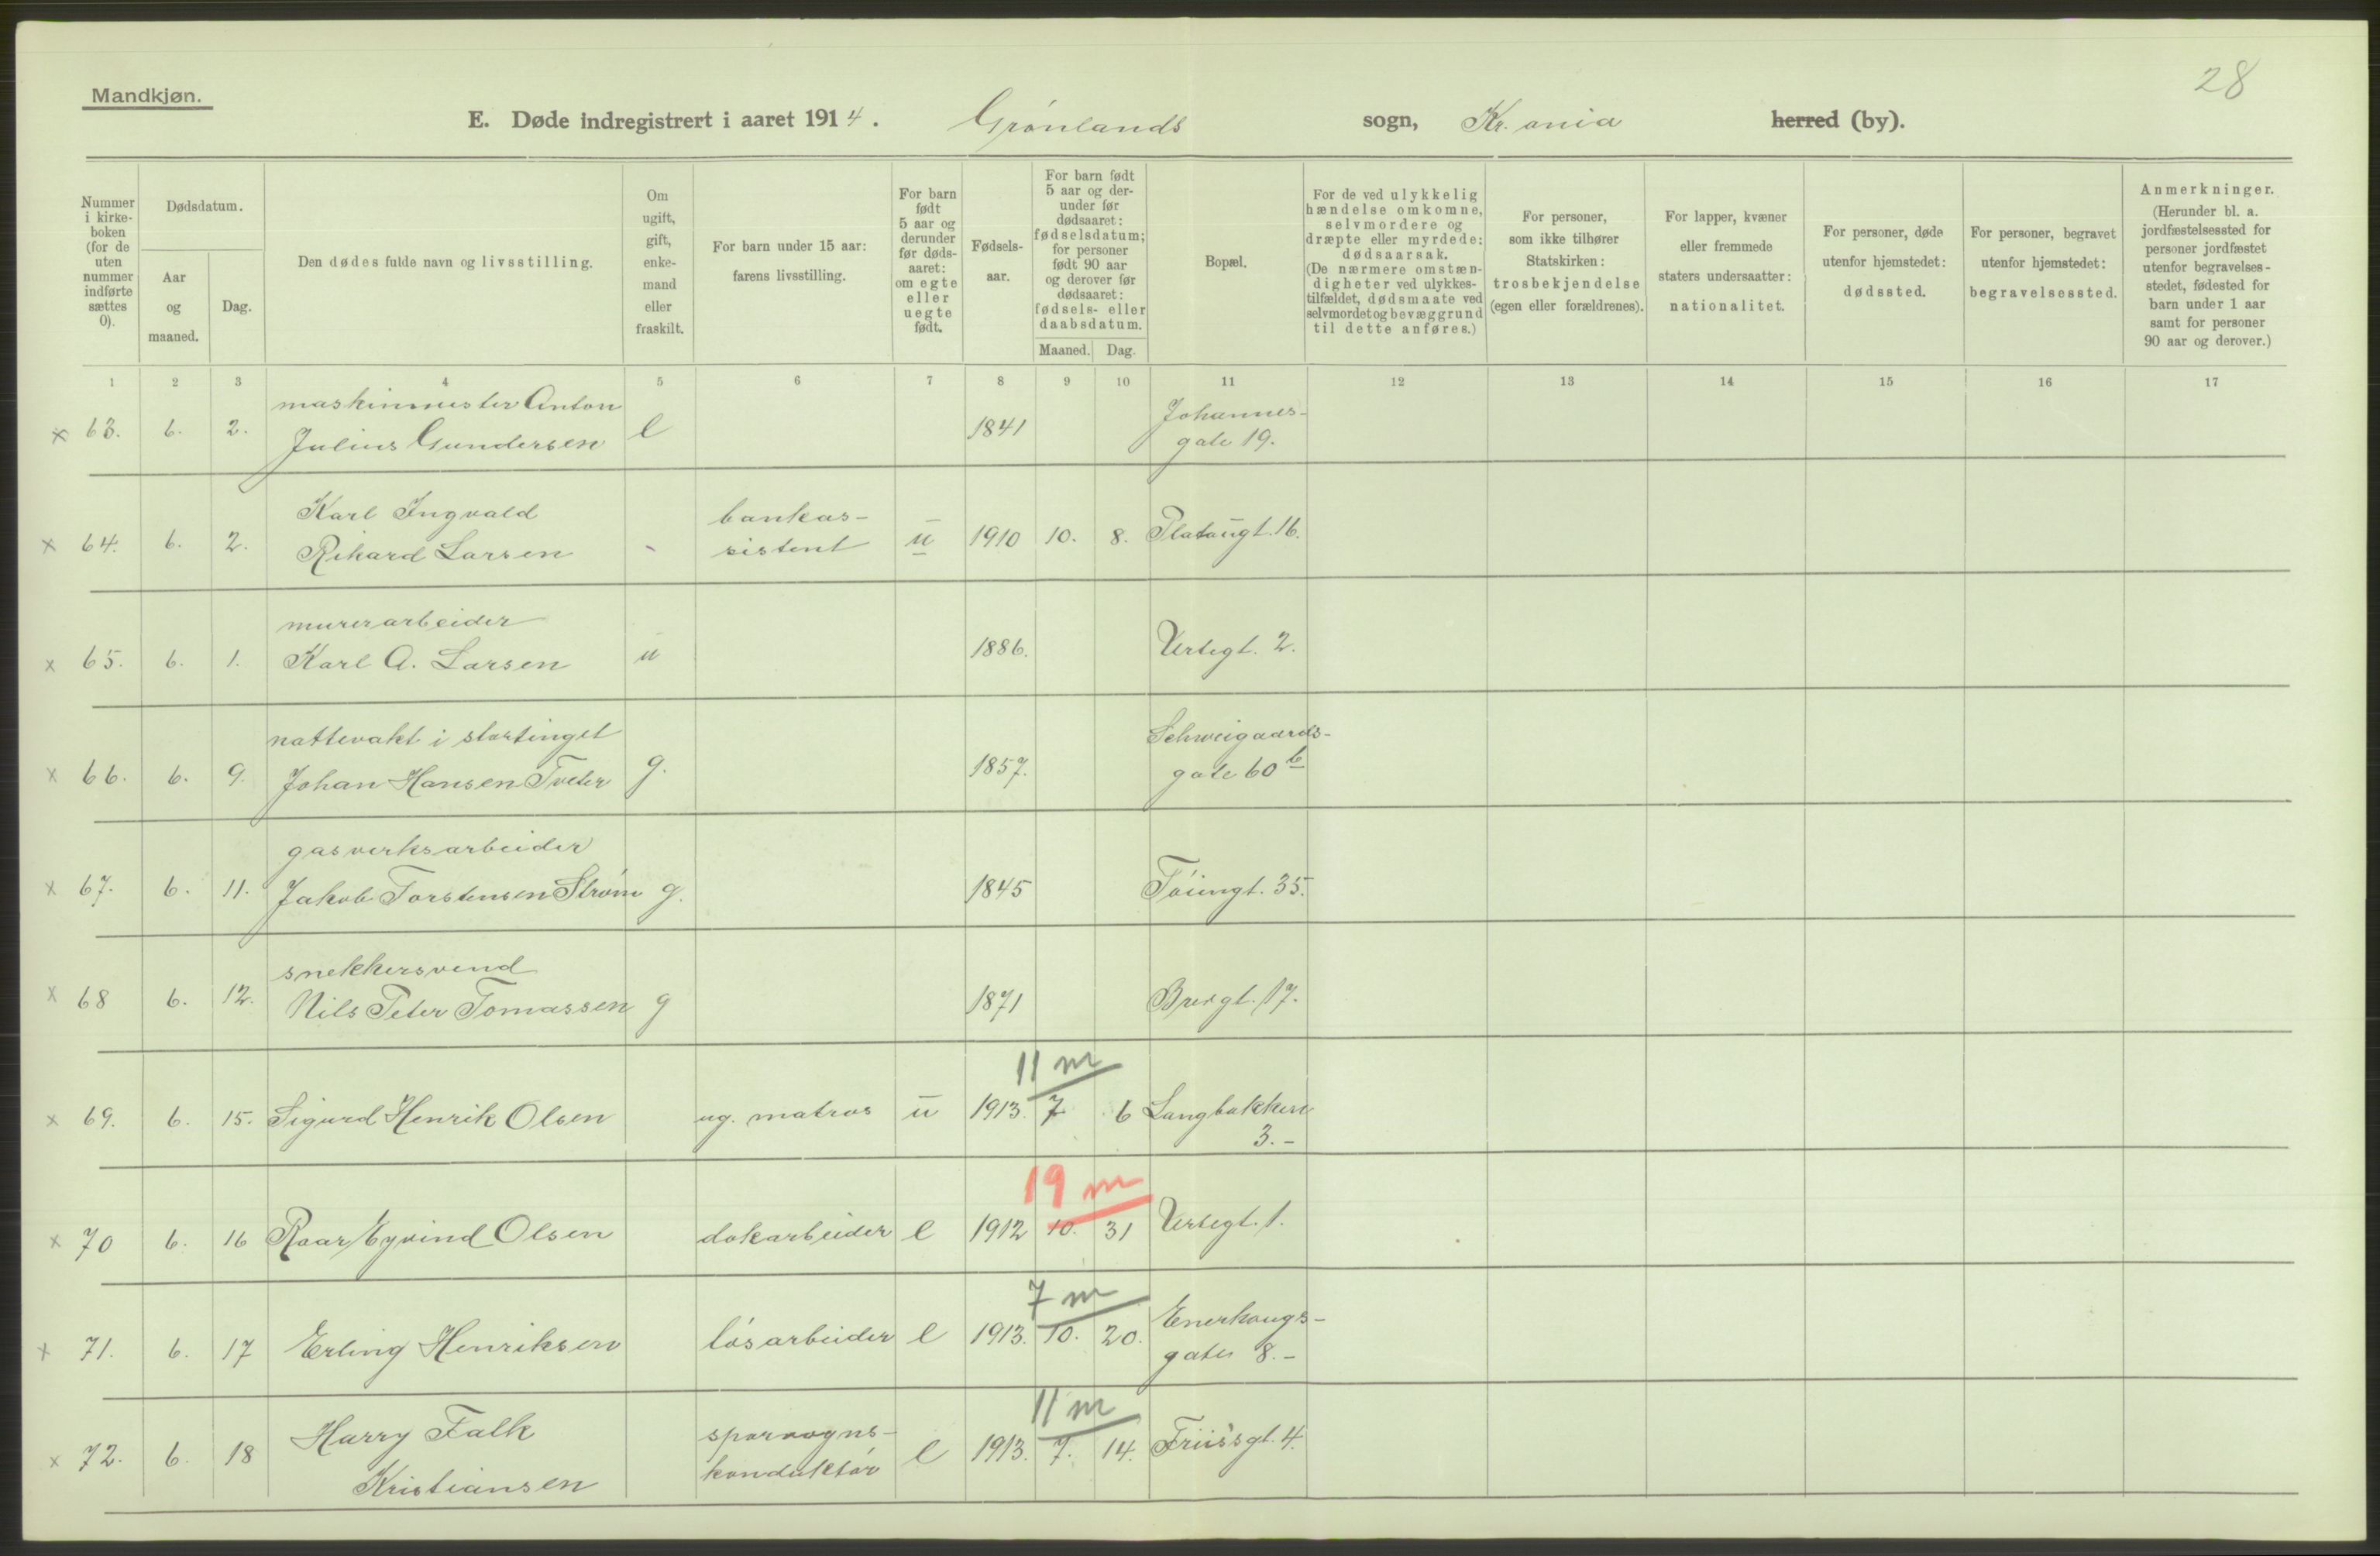 28
Mandkjøn.
E. Døde indregistrert i aaret 1914. Grønlands sogn, Kr.ania herred (by).
Nummer i kirke- boken (for de uten nummer indførte sættes 0).
Dødsdatum.
Aar og maaned.
Dag.
Den dødes fulde navn og livsstilling.
Om ugift, gift, enke- mand eller fraskilt.
For barn under 15 aar: farens livsstilling.
For barn født 5 aar og derunder før døds- aaret: om egte eller uegte født.
Fødsels- aar.
For barn født 5 aar og der- under før dødsaaret: fødselsdatum; for personer født 90 aar og derover før dødsaaret: fødsels- eller daabsdatum.
Maaned. Dag.
Bopæl.
For de ved ulykkelig hændelse omkomne, selvmordere og dræpte eller myrdede: dødsaarsak. (De nærmere omstæn- digheter ved ulykkes- tilfældet, dødsmaate ved selvmordet og bevæggrund til dette anføres.)
For personer, som ikke tilhører Statskirken: trosbekjendelse (egen eller forældrenes).
For lapper, kvæner eller fremmede staters undersaatter: nationalitet.
For personer, døde utenfor hjemstedet: dødssted.
For personer, begravet utenfor hjemstedet: begravelsessted.
Anmerkninger. (Herunder bl. a. jordfæstelsessted for personer jordfæstet utenfor begravelses- stedet, fødested for barn under 1 aar samt for personer 90 aar og derover.)
1 2 3 4 5 6 7 8 9 10 11 12 13 14 15 16 17
maskinmester Anton Johannes-
x 63. 6. 2. Julius Gundersen e 1841 gate 19.
Karl Ingvald bankas-
x 64. 6. 2. Rikard Larsen - sistent u 1910 10. 8. Platougt. 16.
murerarbeider
x 65. 6. 1. Karl A. Larsen u 1886. Urtegt. 2.
nattevakt i stortinget Schweigaards-
x 66. 6. 9. Johan Hansen Tveter g. 1857. gate 60 b
gasverksarbeider
x 67. 6. 11. Jakob Torstensen Strøm g. 1845 Tøiengt. 35.
snekkersvend
x 68 6. 12. Nils Peter Tomassen g 1871 17.
11 m
x 69. 6. 15. Sigurd Henrik Olsen ug. matros u 1913. 7 6 Langbakken
3.-
19 m
x 70 6. 16 Roar Eyvind Olsen dokarbeider e 1912 10. 31 Urtegt. 1.
7 m
x 71. 6. 17 Erling Henriksen løsarbeider e 1913. 10. 20. Enerhaugs-
gaten 8.-
11 m
x 72. 6. 18 Harry Falk sporvogns- e 1913. 7. 14. Friissgt. 4.
Kristiansen konduktør